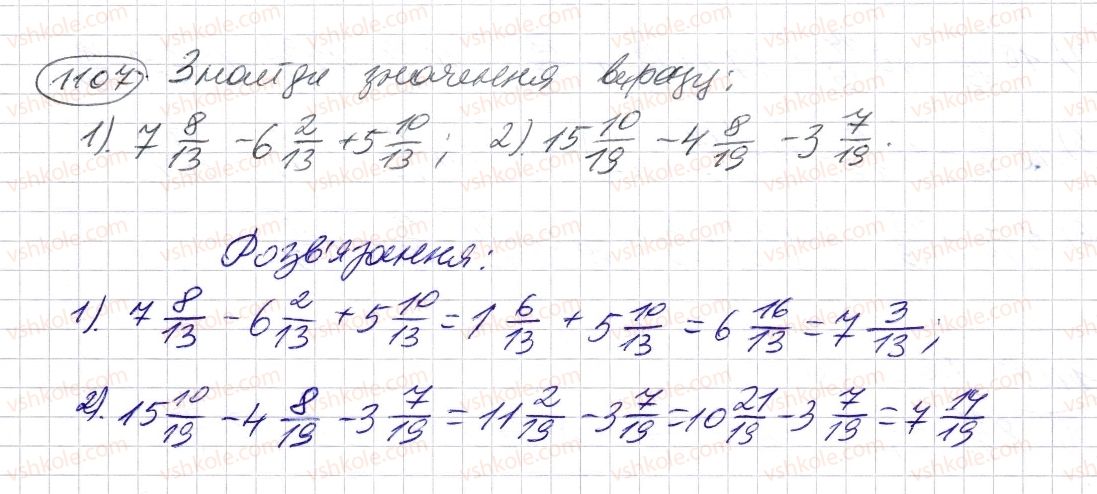 1107. Знайди значення виразу:
1). 7 8/13 - 6 2/13 + 5 10/13; 2). 15 10/19 - 4 8/19 - 3 7/19.
Розв'язання:
1). 7 8/13 - 6 2/13 + 5 10/13 = 1 6/13 + 5 10/13 = 6 16/13 = 7 3/13;
2). 15 10/19 - 4 8/19 - 3 7/19 = 11 2/19 - 3 7/19 = 10 21/19 - 3 7/19 = 7 14/19